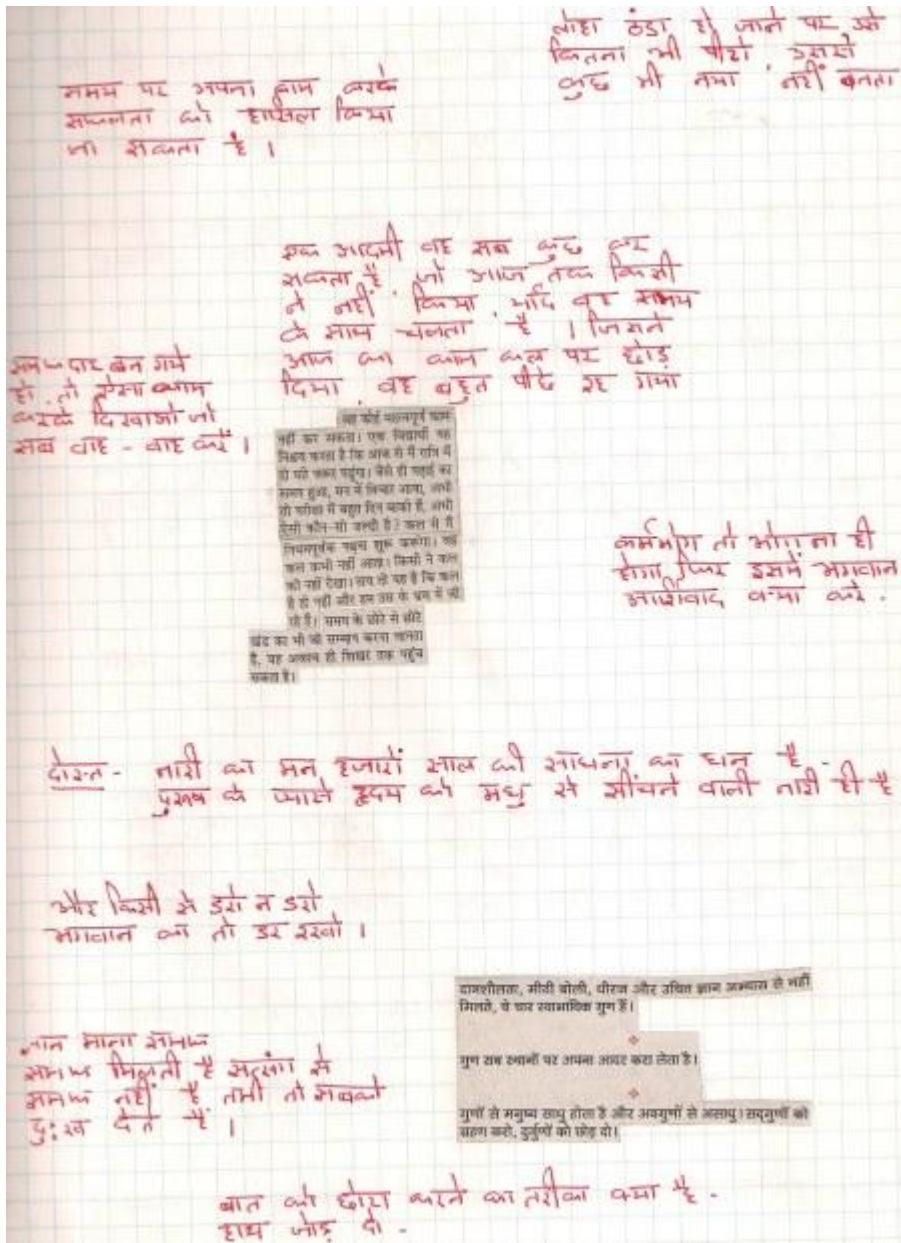 लोहा ठंडा हो जाने पर उसे
कितना भी पीटो, उससे
कुछ भी नया नहीं बनता
समय पर अपना काम करके
सफलता को हासिल किया
जा सकता है ।
एक आदमी वह सब कुछ कर
सकता है, जो आज तक किसी
ने नहीं किया, यदि वह समय
के साथ चलता है । जिसने
आज का काम कल पर छोड़
दिया, वह बहुत पीछे रह गया
समझदार बन गये
हो, तो ऐसा काम
करके दिखाओ जो
सब वाह - वाह करें ।
वह कोई महत्वपूर्ण काम
नहीं कर सकता। एक विद्यार्थी यह
निश्चय करता है कि आज से मैं रात्रि में
दो घंटे जरूर पढूंगा। जैसे ही पढ़ाई का
समय हुआ, मन में विचार आया, अभी
तो परीक्षा में बहुत दिन बाकी हैं, अभी
ऐसी कौन-सी जल्दी है? कल से मैं
नियमपूर्वक पढ़ना शुरू करूंगा। वह
कल कभी नहीं आता। किसी ने कल
को नहीं देखा। सच तो यह है कि कल
है ही नहीं और हम उस के भ्रम में जी
रहे हैं। समय के छोटे से छोटे
खंड का भी जो सम्मान करना जानता
है, वह अवश्य ही शिखर तक पहुंच
सकता है।
कर्मभोग तो भोगना ही
होगा फिर इसमें भगवान
आशीवाद क्या करे .
दोस्त - नारी का मन हजारों साल की साधना का धन है -
पुरुष के प्यासे हृदय को मधु से सींचने वाली नारी ही है
और किसी से डरो न डरो
भगवान का तो डर रखो ।
दानशीलता, मीठी बोली, धीरज और उचित ज्ञान अभ्यास से नहीं
मिलते, ये चार स्वाभाविक गुण हैं।
गुण सब स्थानों पर अपना आदर करा लेता है।
गुणों से मनुष्य साधु होता है और अवगुणों से असाधु। सद्गुणों को
ग्रहण करो, दुर्गुणों को छोड़ दो।
ज्ञान माना समझ
समझ मिलती है सत्संग से
समझ नहीं है तभी तो सबको
दु:ख देते हैं ।
बात को छोटा करने का तरीका क्या है -
हाथ जोड़ दो -